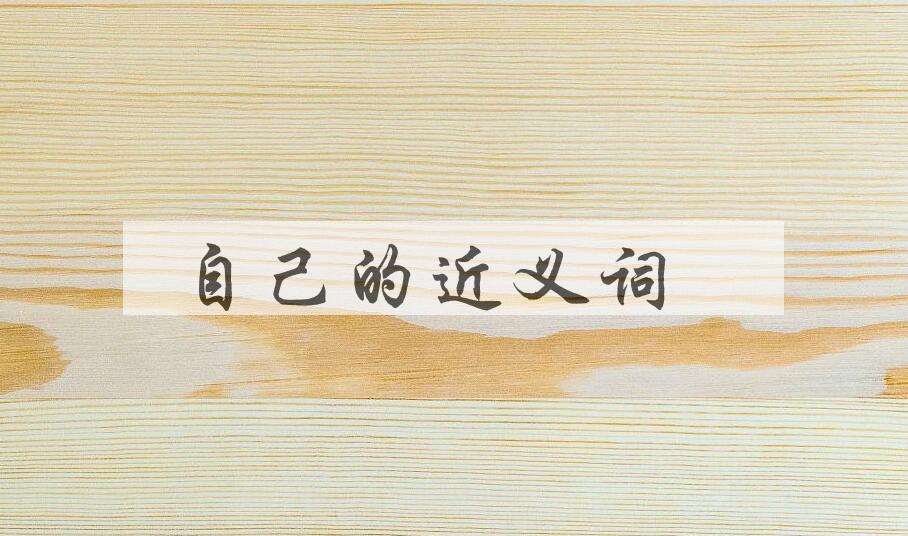 自己的近义词